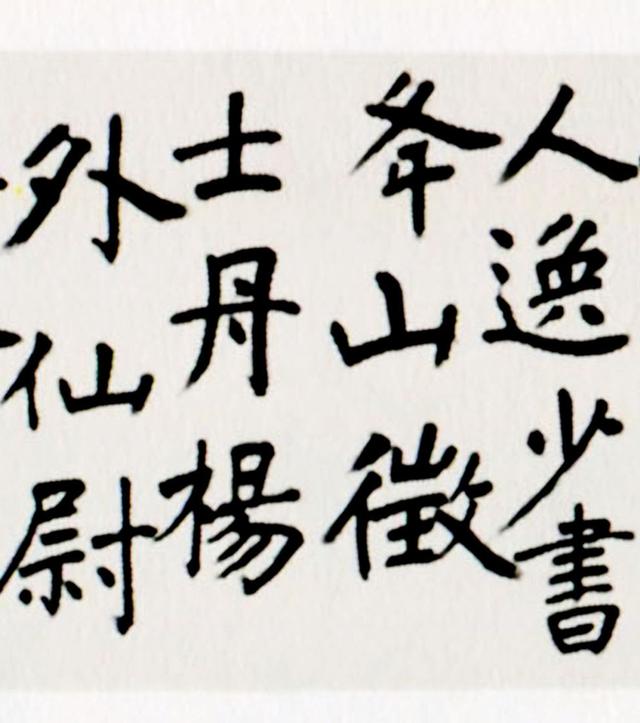 人逸少書
夅山徵
士丹楊
外仙尉